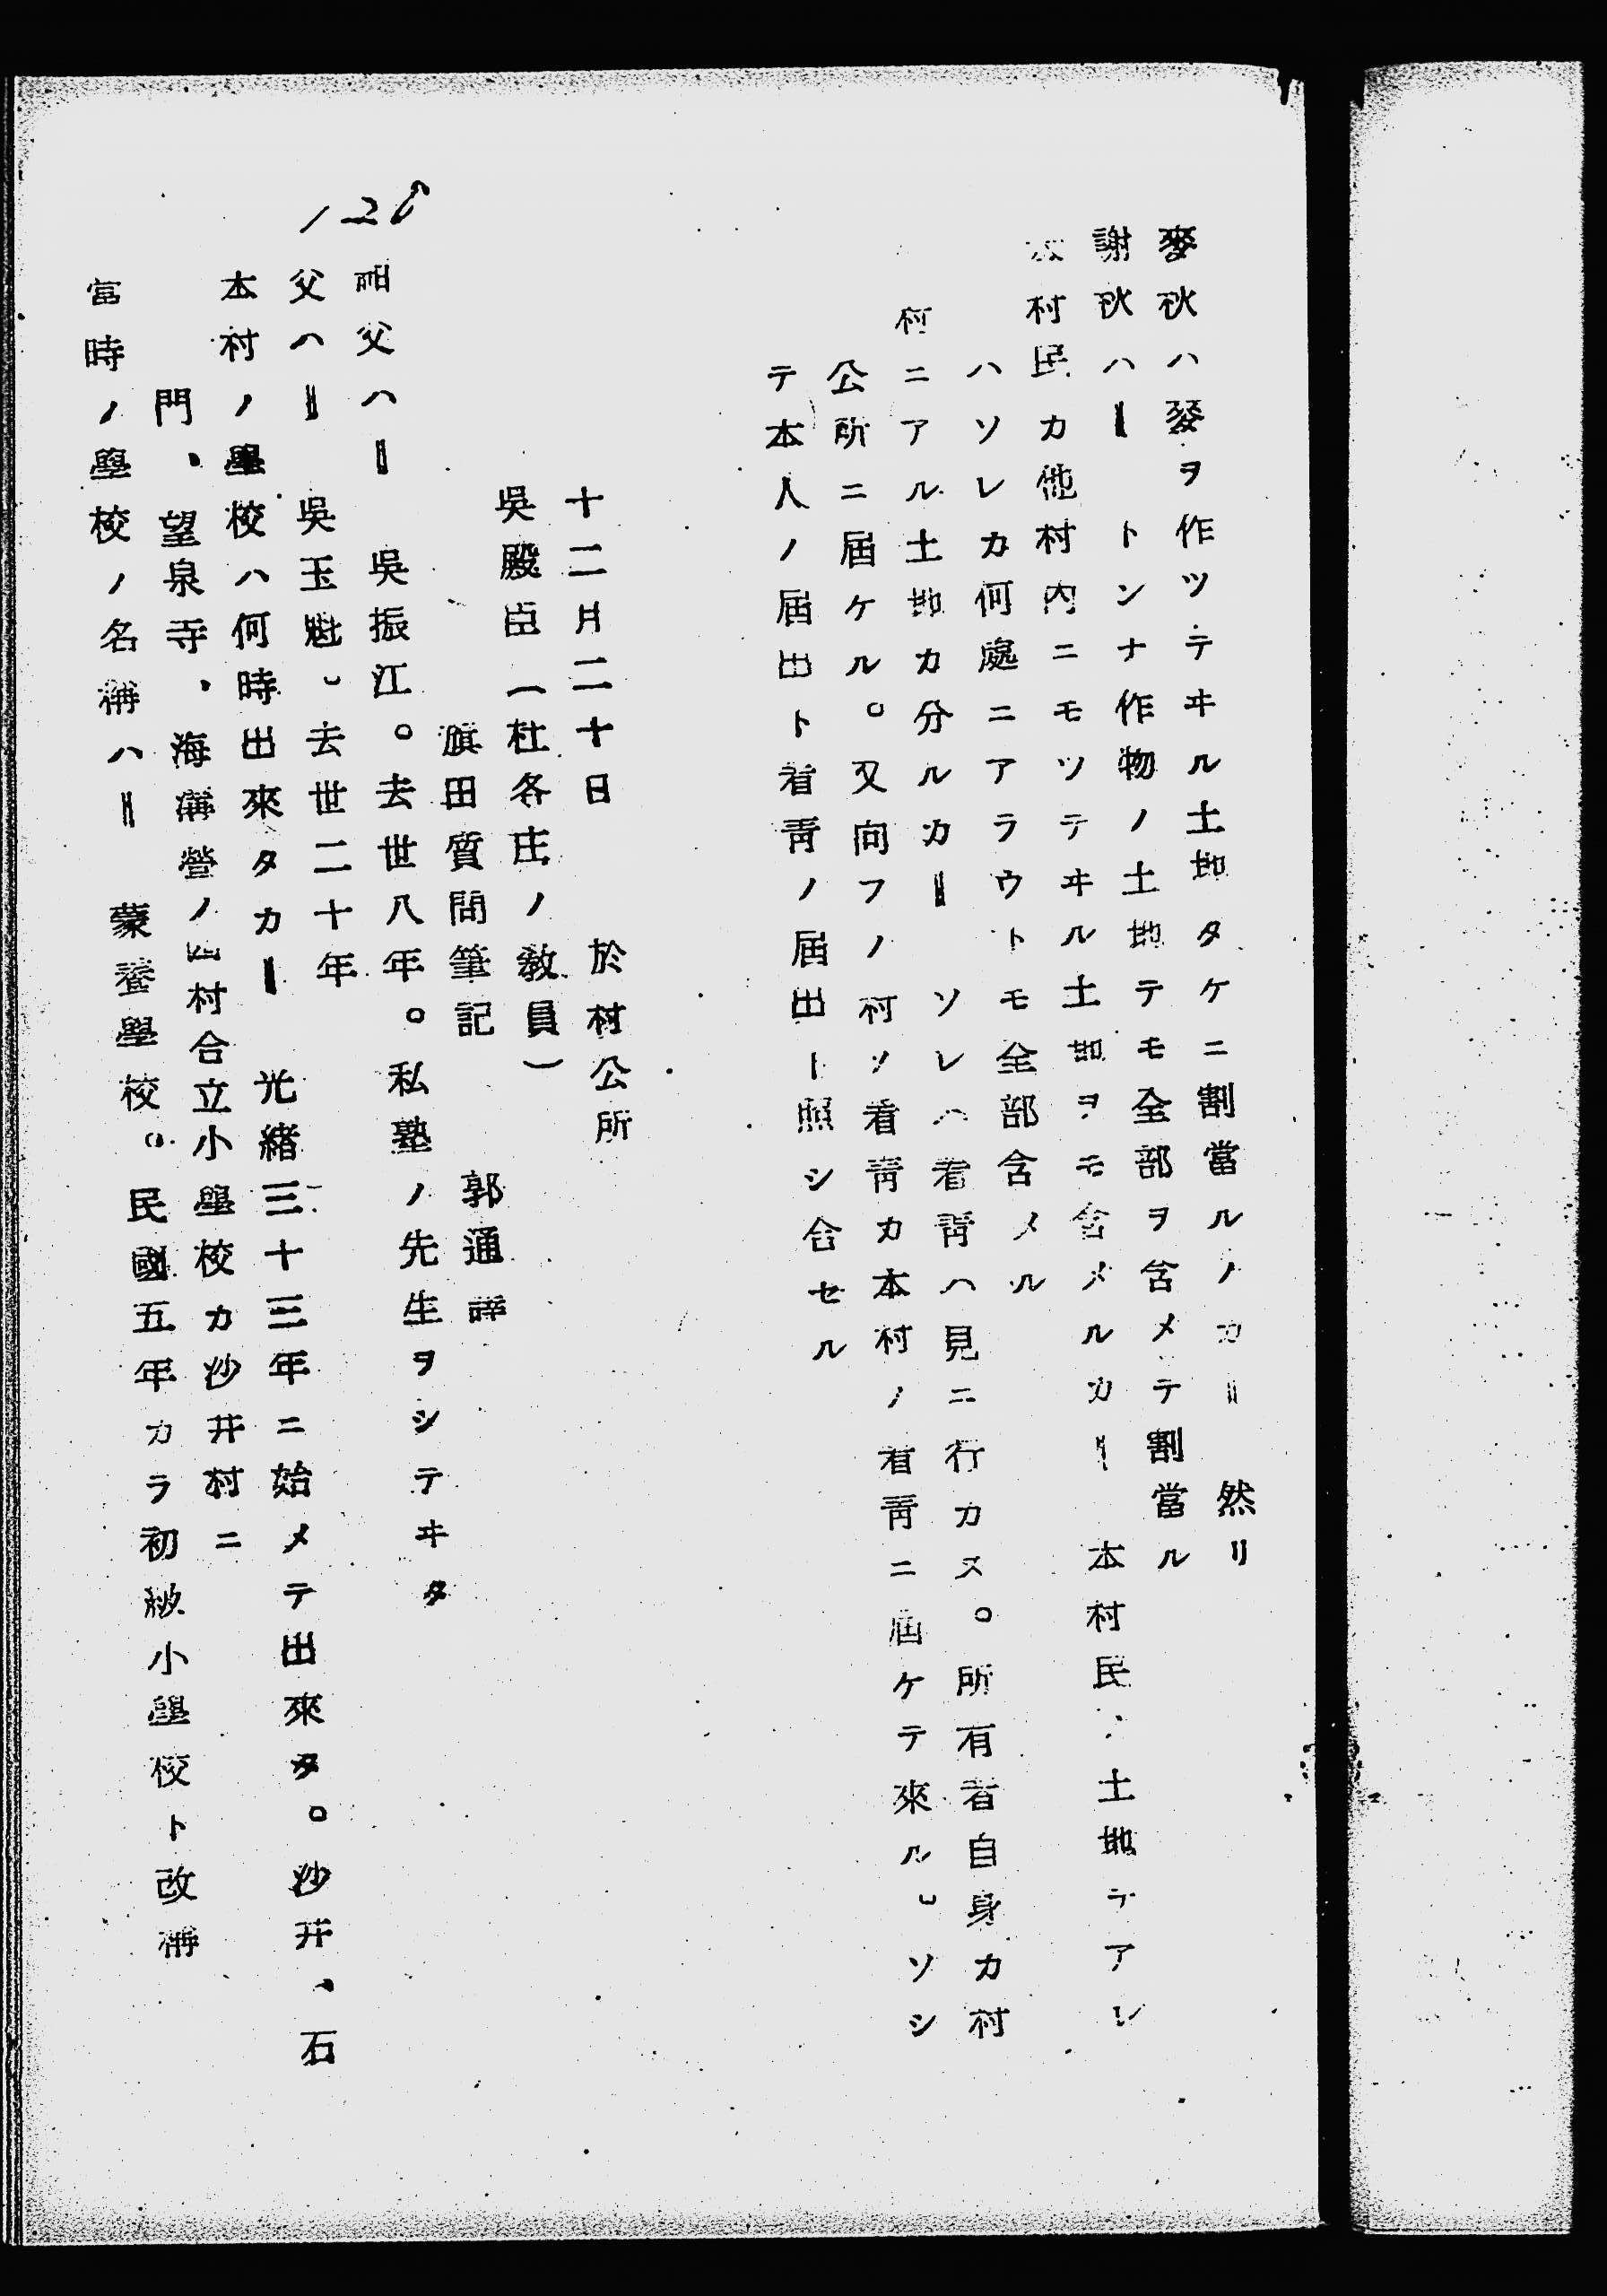 麥秋ハ麥ヲ作ツテヰル土地タケニ割當ルノカ‖　然リ
謝秋ハ‖　トンナ作物ノ土地テモ全部ヲ含メテ割當ル
村民カ他村内ニモツテヰル土地ヲモ含メルカ‖　本村民ノ土地テアレ
ハソレカ何處ニアラウトモ全部含メル
村ニアル土地カ分ルカ‖　ソレハ看靑ハ見ニ行カヌ。所有者自身カ村
公所ニ届ケル。又向フノ村ノ看靑カ本村ノ看靑ニ屆ケテ來ル。ソシ
テ本人ノ届出ト看靑ノ届出ト照シ合セル
十二月二十日　於村公所
吳殿臣（杜各庄ノ敎員）
旗田質問筆記　郭通譯
祖父ハ‖　吳振江。去世八年。私塾ノ先生ヲシテヰタ
父ハ‖　吳玉魁。去世二十年
本村ノ學校ハ何時出來タカ‖　光緒三十三年ニ始メテ出來タ。沙井、石
門、望泉寺、海溝營ノ四村合立小學校カ沙井村ニ
當時ノ學校ノ名稱ハ‖　蒙養學校。民國五年カラ初級小學校ト改稱
126